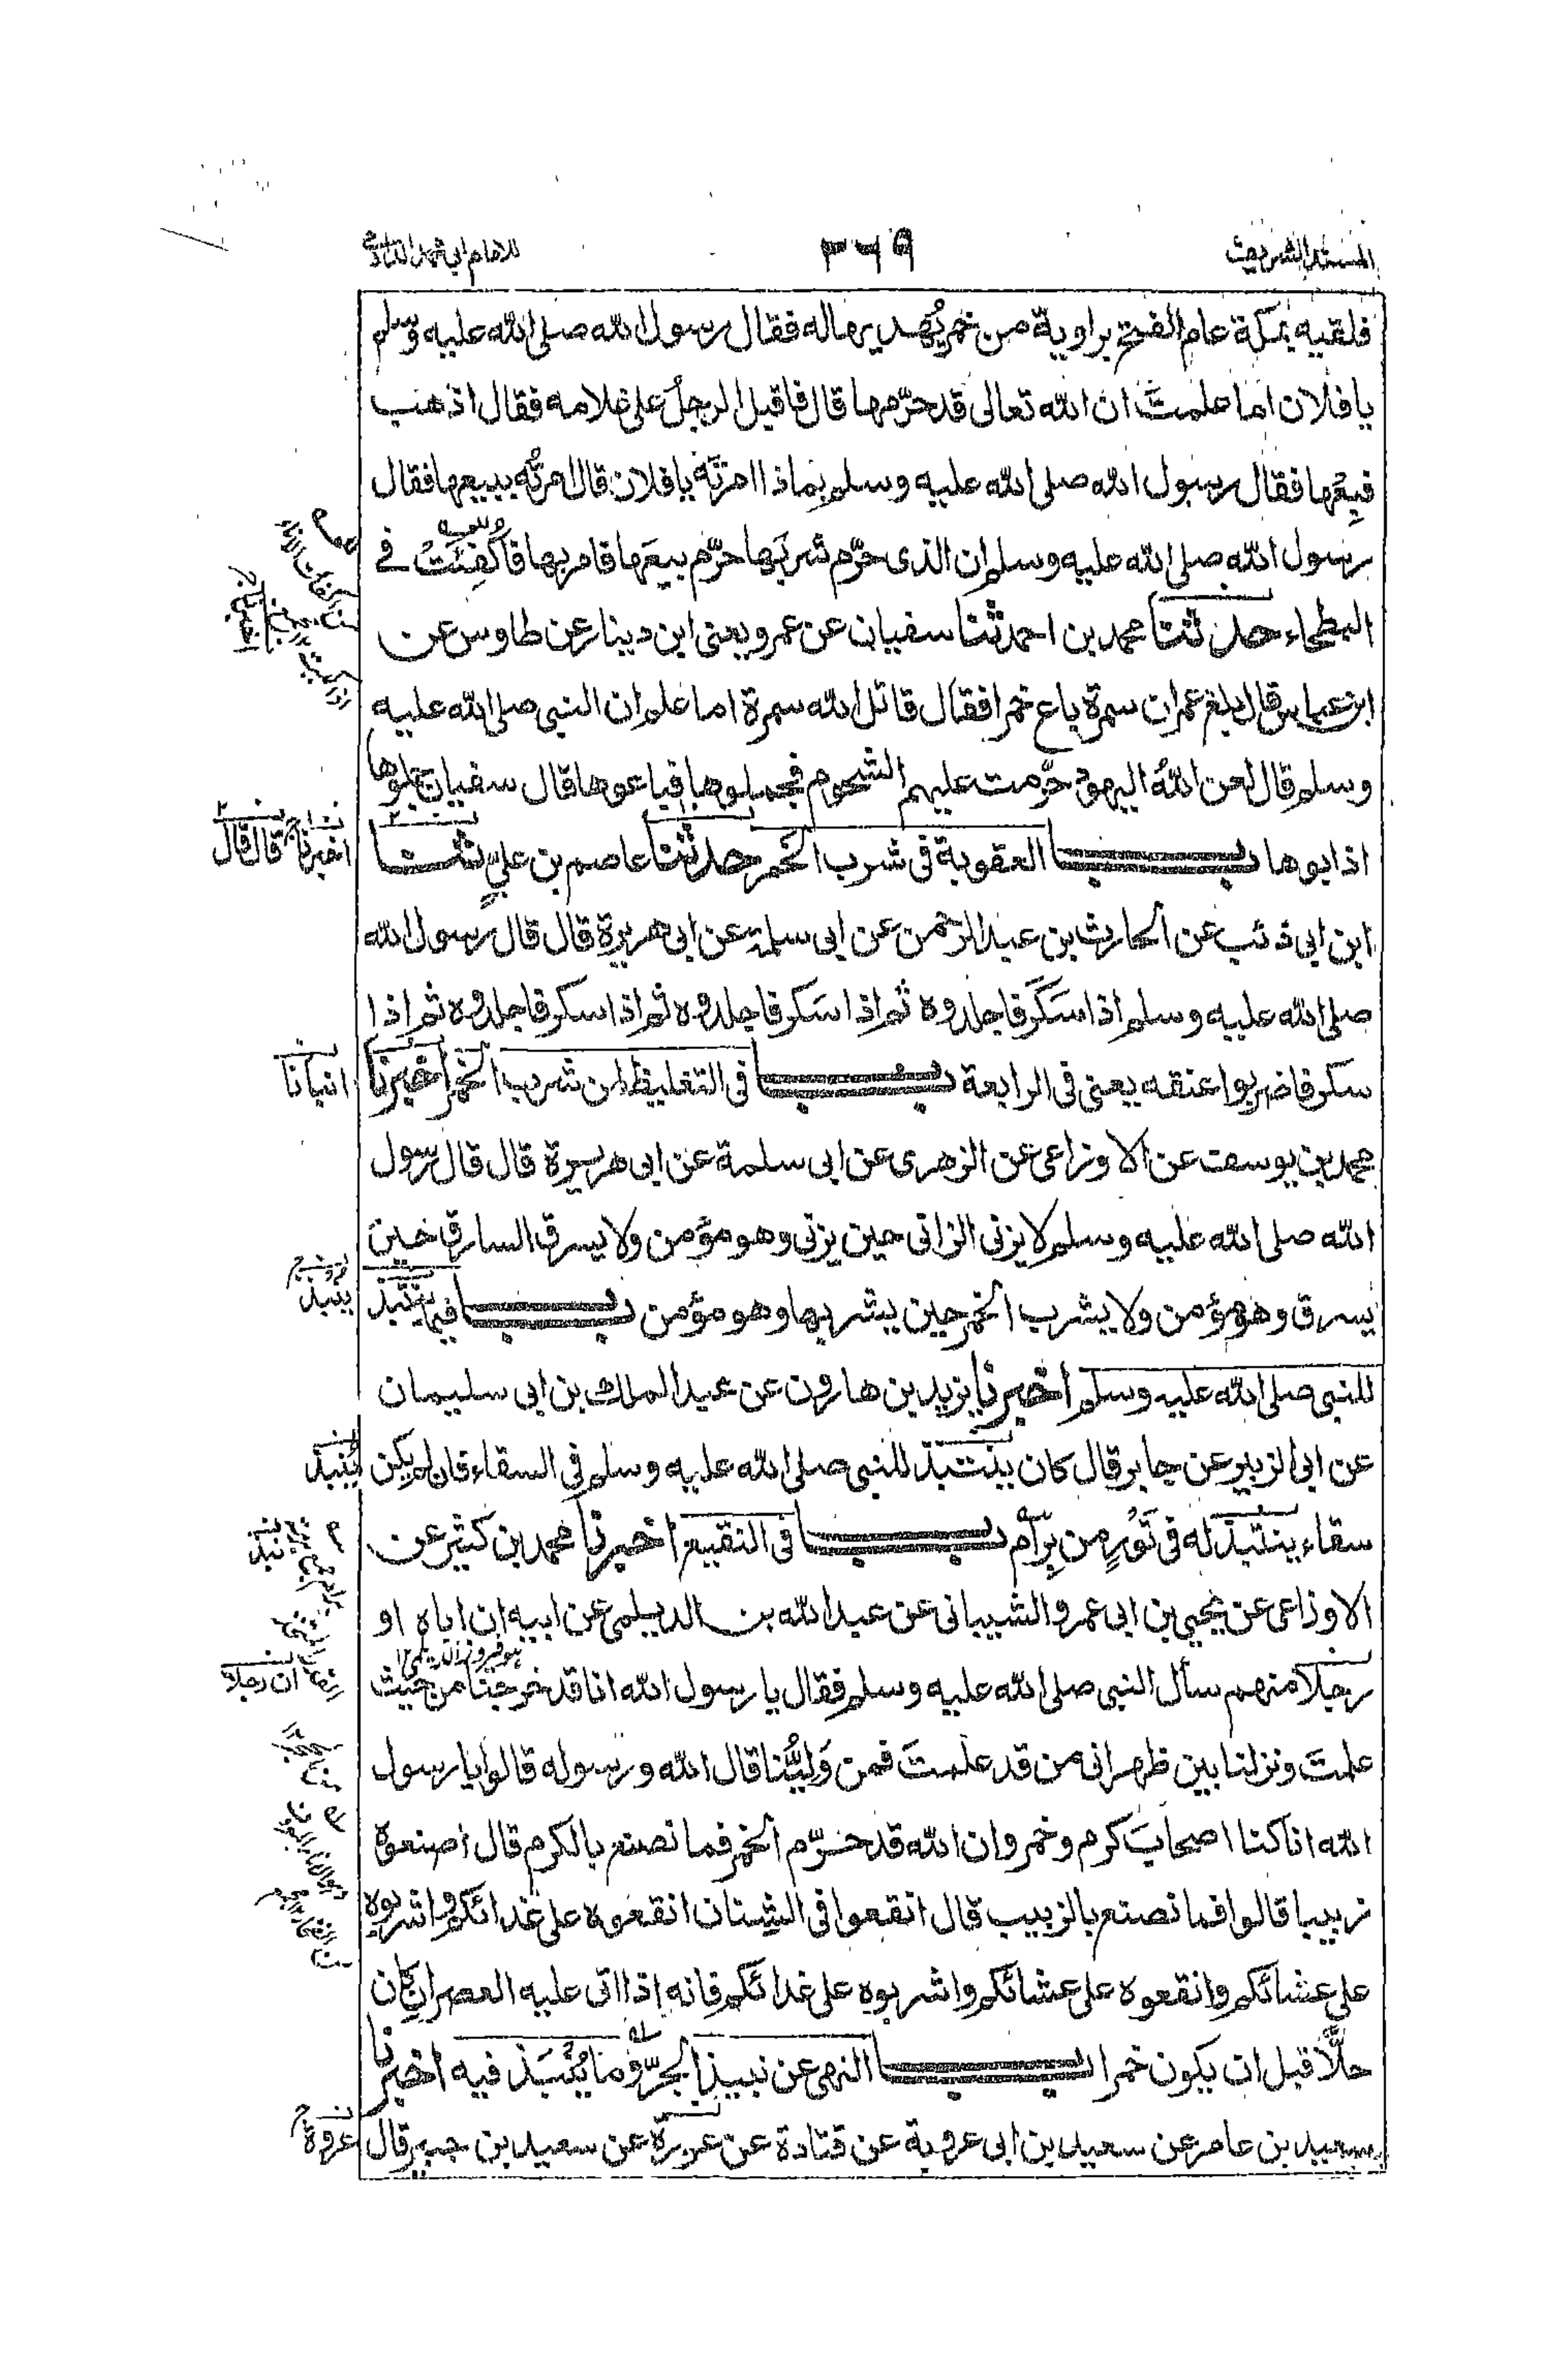 المسند الشريف
٢٦٩
للامام ابي محمد الدارمي
فلقيه بمكة عام الفتح براوية من خمر يُهديها له فقال رسول الله صلى الله عليه وسلم
يا فلان اما علمتَ ان الله تعالى قد حرّمها قال فاقبل الرجلُ على غلامه فقال اذهب
فبِعْها فقال رسول الله صلى الله عليه وسلم بماذا امرتَه يا فلان قال امرتُه ببيعها فقال
رسول الله صلى الله عليه وسلم ان الذى حرّم شربَها حرّم بيعَها فامر بها فاُكْفِئَتْ فے
البطحاء حدثنا محمد بن احمد ثنا سفيان عن عمرو يعنى ابن دينار عن طاوس عن
ابن عباس قال بلغ عمر ان سمرة باع خمرا فقال قاتل الله سمرة اما علم ان النبى صلى الله عليه
وسلم قال لعن اللهُ اليهود حرّمت عليهم الشحوم فجملوها فباعوها قال سفيان جملوها
اذابوها باب العقوبة فى شرب الخمر حدثنا عاصم بن علي ثنا
اخبرنا قال قال
ابن ابى ذئب عن الحارث بن عبد الرحمن عن ابى سلمة عن ابى هريرة قال قال رسول الله
صلى الله عليه وسلم اذا سكر فاجلدوه ثم اذا سكر فاجلدوه ثم اذا سكر فاجلدوه ثم اذا
سكر فاضربوا عنقه يعنى فى الرابعة باب فى التغليظ لمن شرب الخمر اخبرنا
انبانا
محمد بن يوسف عن الاوزاعى عن الزهرى عن ابى سلمة عن ابى هريرة قال قال رسول
الله صلى الله عليه وسلم لا يزنى الزانى حين يزنى وهو مؤمن ولا يسرق السارق حين
يسرق وهو مؤمن ولا يشرب الخمر حين يشربها وهو مؤمن باب فيما ينتبذ
ينبذ
للنبى صلى الله عليه وسلم اخبرنا يزيد بن هارون عن عبد الملك بن ابى سليمان
عن ابى الزبير عن جابر قال كان ينتبذ للنبى صلى الله عليه وسلم فى السقاء فان لم يكن
يُنبذ
سقاء ينتبذ له فى تَوْرٍ من بِرام باب فى النقيع اخبرنا محمد بن كثير عن
الاوزاعى عن يحيى بن ابى عمرو الشيبانى عن عبد الله بن الديلمى عن ابيه ان اباه او
هو فيروز الديلمى ١٢
رجلا منهم سأل النبى صلى الله عليه وسلم فقال يا رسول الله انا قد خرجنا من حيث
ان رجلا
علمتَ ونزلنا بين ظهرانى من قد علمتَ فمن وَلِيُّنا قال الله ورسوله قالوا يا رسول
الله انا كنا اصحابَ كرم وخمر وان الله قد حرّم الخمر فما نصنع بالكرم قال اصنعوه
زبيبا قالوا فما نصنع بالزبيب قال انقعوا فى الشِنان انقعوه على غدائكم واشربوه
على عشائكم وانقعوه على عشائكم واشربوه على غدائكم فانه اذا اتى عليه العصران كان
حلّا قبل ان يكون خمرا باب النهى عن نبيذ الجرّ وما يُنْتَبَذ فيه اخبرنا
سعيد بن عامر عن سعيد بن ابى عروبة عن قتادة عن عزرة عن سعيد بن جبير قال
عروة